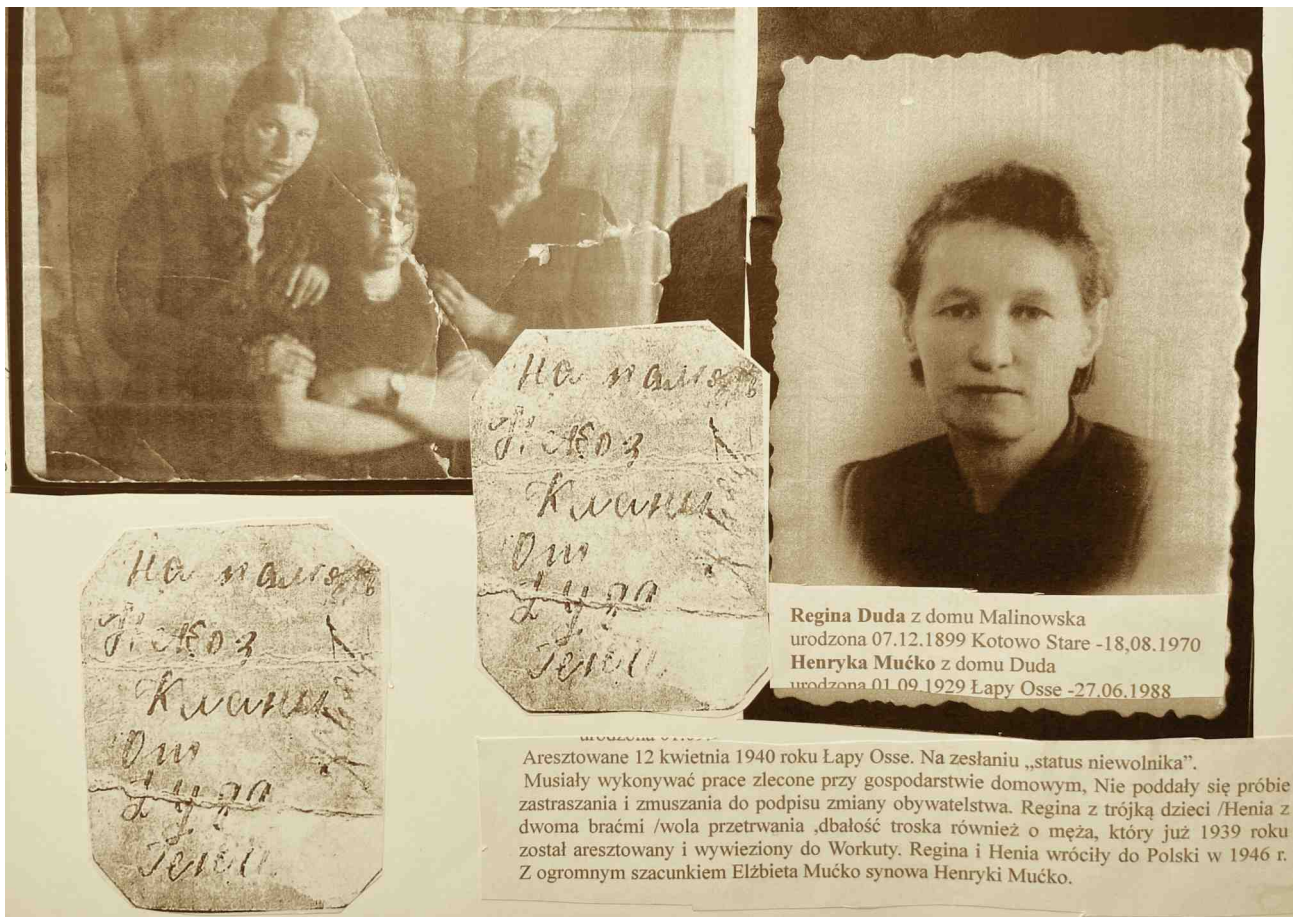 На память
Клани
От
Дуда
Гени
На память
Клани
От
Дуда
Гени
Regina Duda z domu Malinowska
urodzona 07.12.1899 Kotowo Stare -18,08.1970
Henryka Mućko z domu Duda
urodzona 01.09.1929 Łapy Osse -27.06.1988
Aresztowane 12 kwietnia 1940 roku Łapy Osse. Na zesłaniu „status niewolnika”.
Musiały wykonywać prace zlecone przy gospodarstwie domowym, Nie poddały się próbie
zastraszania i zmuszania do podpisu zmiany obywatelstwa. Regina z trójką dzieci /Henia z
dwoma braćmi /wola przetrwania ,dbałość troska również o męża, który już 1939 roku
został aresztowany i wywieziony do Workuty. Regina i Henia wróciły do Polski w 1946 r.
Z ogromnym szacunkiem Elżbieta Mućko synowa Henryki Mućko.